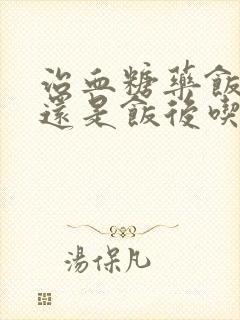 治血糖藥飯
還是飯後喫
湯保凡